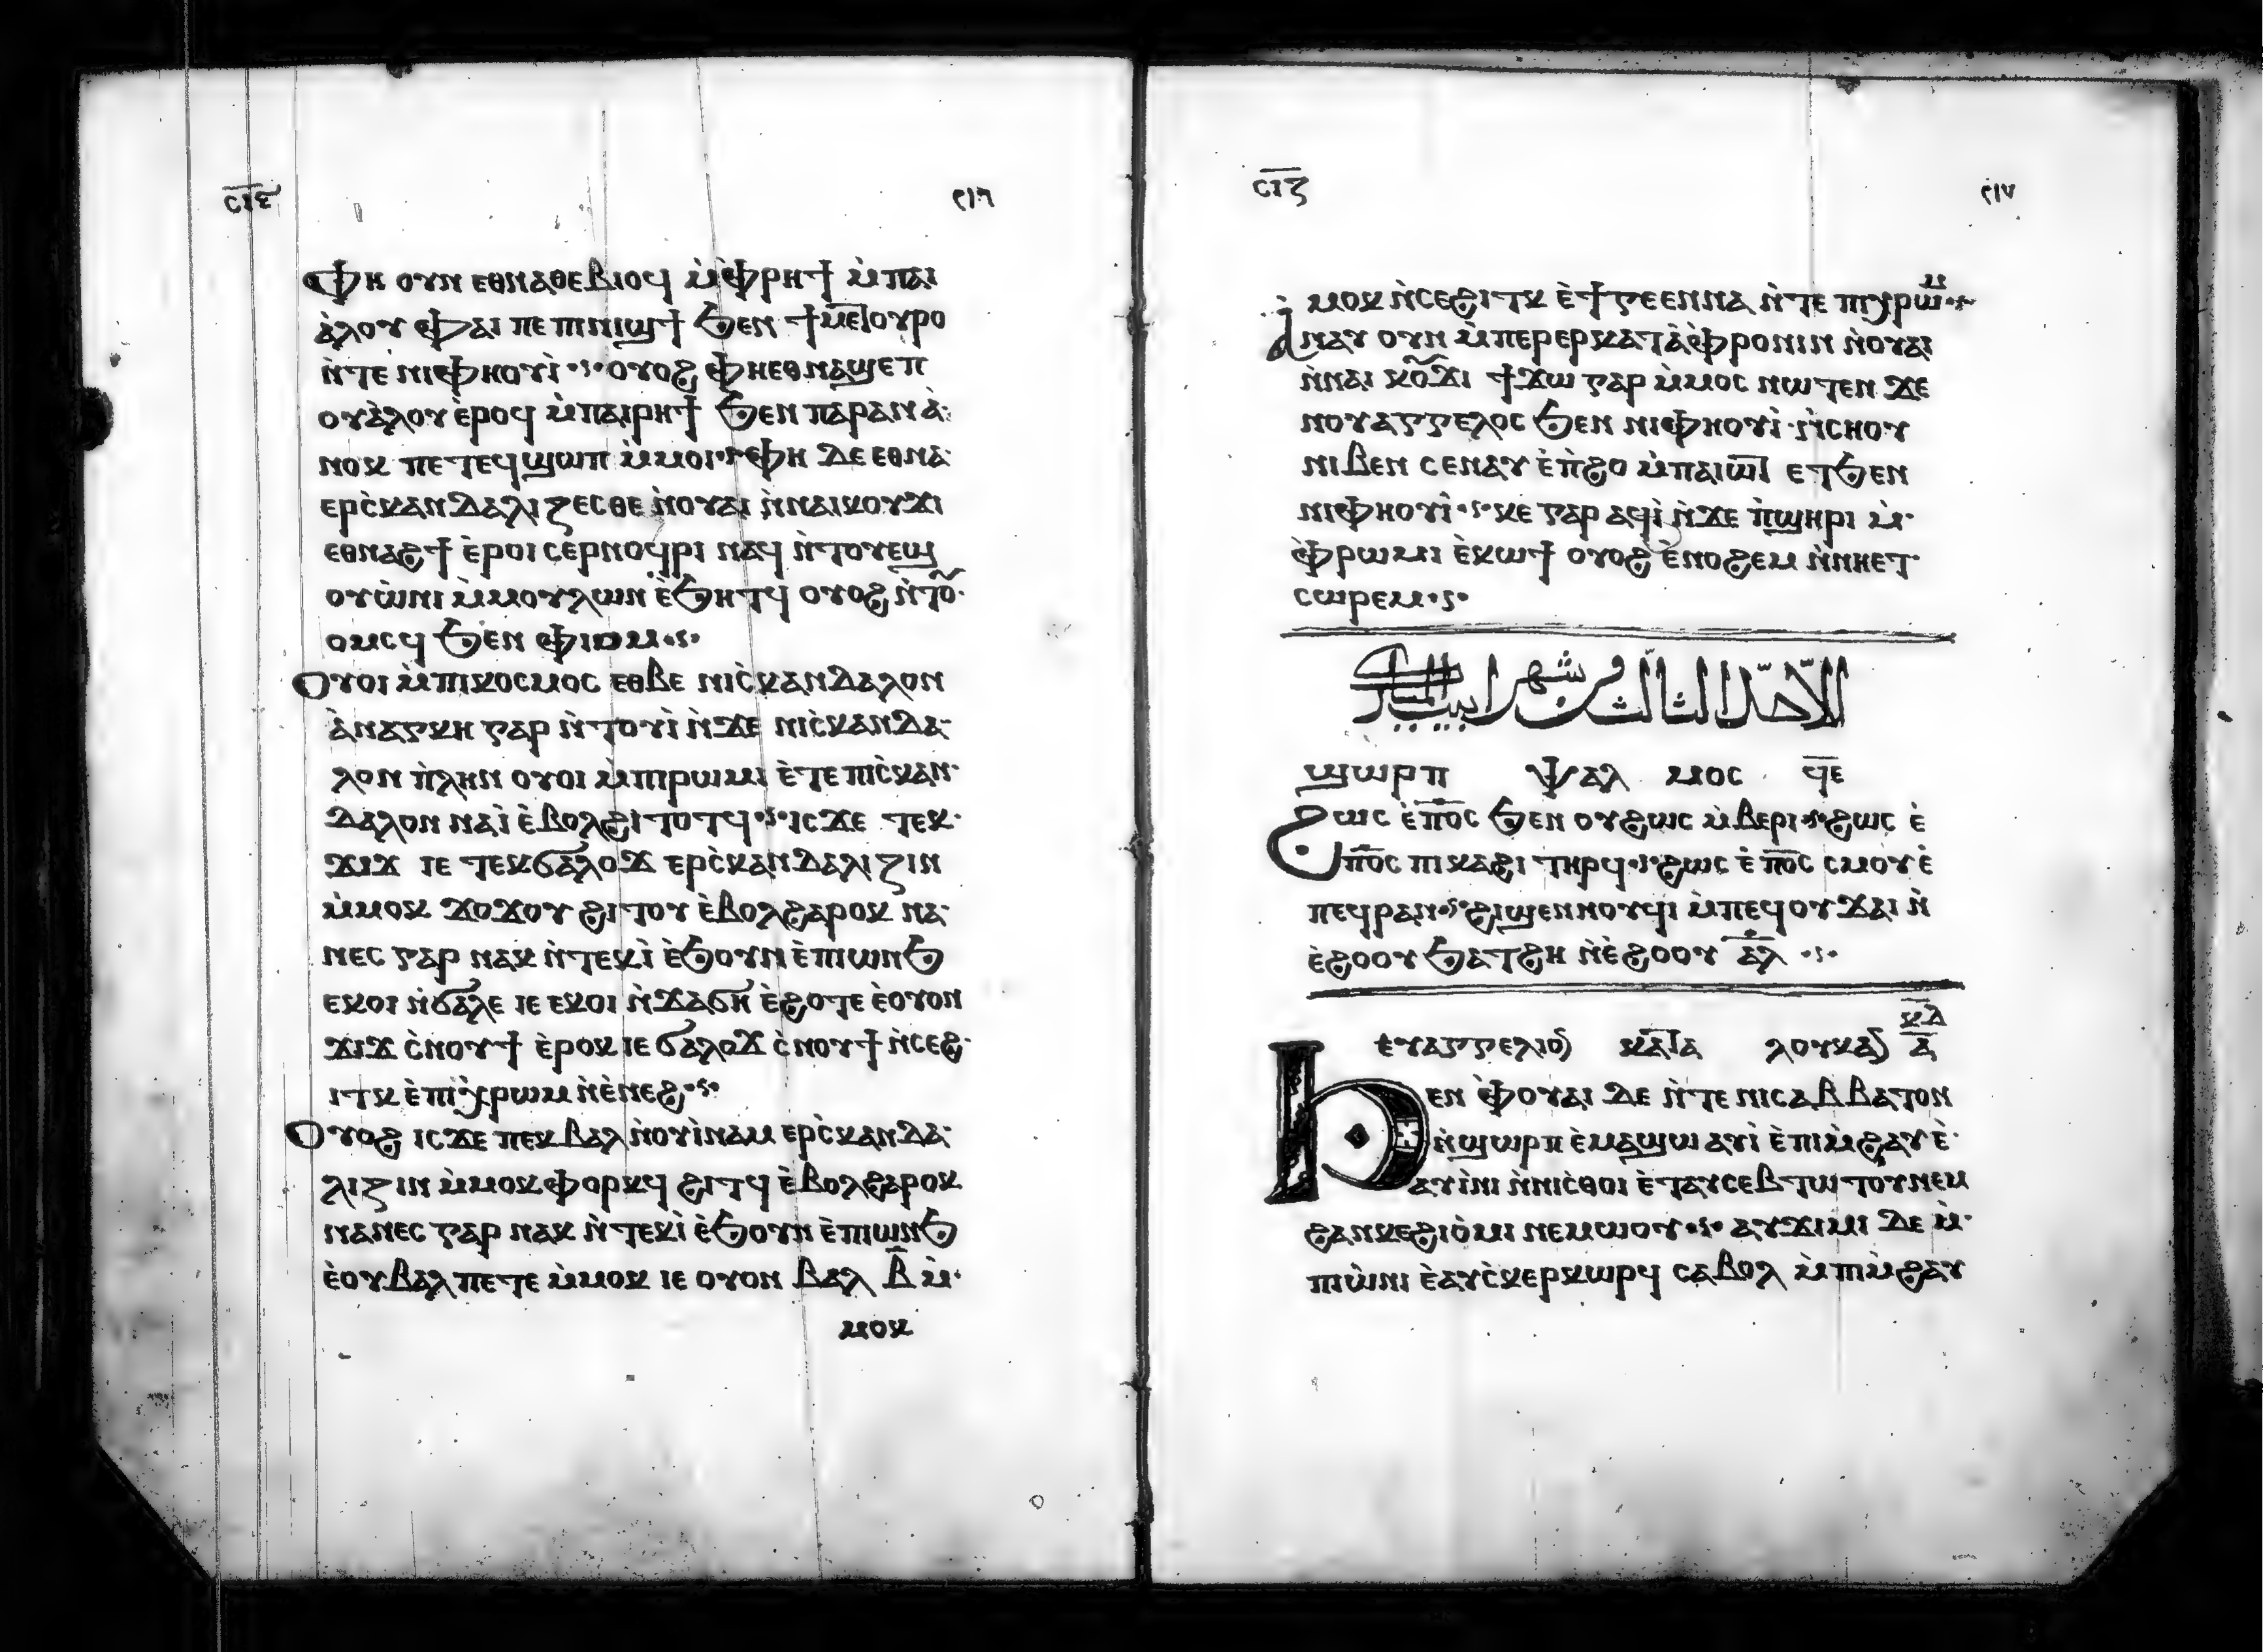 ⲥⲓⲋ ٢١٦
Ⲫⲏ ⲟⲩⲛ ⲉⲑⲛⲁⲑⲉⲃⲓⲟϥ ⲙ̀ⲫⲣⲏϯ ⲙ̀ⲡⲁⲓ
ⲁ̀ⲗⲟⲩ ⲫⲁⲓ ⲡⲉ ⲡⲓⲛⲓϣϯ ϧⲉⲛ ϯⲙⲉⲧⲟⲩⲣⲟ
ⲛ̀ⲧⲉ ⲛⲓⲫⲏⲟⲩⲓ̀ ⲟⲩⲟϩ ⲫⲏⲉⲑⲛⲁϣⲉⲡ
ⲟⲩⲁ̀ⲗⲟⲩ ⲉ̀ⲣⲟϥ ⲙ̀ⲡⲁⲓⲣⲏϯ ϧⲉⲛ ⲡⲁⲣⲁⲛ ⲁ̀
ⲛⲟⲕ ⲡⲉⲧⲉϥϣⲱⲡ ⲙ̀ⲙⲟⲓ ⲫⲏ ⲇⲉ ⲉⲑⲛⲁ
ⲉⲣⲥ̀ⲕⲁⲛⲇⲁⲗⲓⲍⲉⲥⲑⲉ ⲛ̀ⲟⲩⲁⲓ ⲛ̀ⲛⲁⲓⲕⲟⲩϫⲓ
ⲉⲑⲛⲁϩϯ ⲉ̀ⲣⲟⲓ ⲥⲉⲣⲛⲟϥⲣⲓ ⲛⲁϥ ⲛ̀ⲧⲟⲩⲉϣ
ⲟⲩⲱ̀ⲛⲓ ⲙ̀ⲙⲟⲩⲗⲱⲛ ⲉ̀ϧⲏⲧϥ ⲟⲩⲟϩ ⲛ̀ⲧⲟ̃
ⲟⲙⲥϥ ϧⲉⲛ ⲫⲓⲟⲙ
Ⲟⲩⲟⲓ ⲙ̀ⲡⲓⲕⲟⲥⲙⲟⲥ ⲉⲑⲃⲉ ⲛⲓⲥ̀ⲕⲁⲛⲇⲁⲗⲟⲛ
ⲁ̀ⲛⲁⲅⲕⲏ ⲅⲁⲣ ⲛ̀ⲧⲟⲩⲓ̀ ⲛ̀ϫⲉ ⲛⲓⲥ̀ⲕⲁⲛⲇⲁ
ⲗⲟⲛ ⲡ̀ⲗⲏⲛ ⲟⲩⲟⲓ ⲙ̀ⲡⲓⲣⲱⲙⲓ ⲉ̀ⲧⲉ ⲡⲓⲥ̀ⲕⲁⲛ
ⲇⲁⲗⲟⲛ ⲛⲁⲓ̀ ⲉ̀ⲃⲟⲗϩⲓⲧⲟⲧϥ ⲓⲥϫⲉ ⲧⲉⲕ
ϫⲓϫ ⲓⲉ ⲧⲉⲕϭⲁⲗⲟϫ ⲉⲣⲥ̀ⲕⲁⲛⲇⲁⲗⲓⲍⲓⲛ
ⲙ̀ⲙⲟⲕ ϫⲟϫⲟⲩ ϩⲓⲧⲟⲩ ⲉ̀ⲃⲟⲗϩⲁⲣⲟⲕ ⲛⲁ
ⲛⲉⲥ ⲅⲁⲣ ⲛⲁⲕ ⲛ̀ⲧⲉⲕⲓ̀ ⲉ̀ϧⲟⲩⲛ ⲉ̀ⲡⲓⲱⲛϧ
ⲉⲕⲟⲓ ⲛ̀ϭⲁⲗⲉ ⲓⲉ ⲉⲕⲟⲓ ⲛ̀ϫⲁϭⲏ ⲉ̀ϩⲟⲧⲉ ⲉ̀ⲟⲩⲟⲛ
ϫⲓϫ ⲥ̀ⲛⲟⲩϯ ⲉ̀ⲣⲟⲕ ⲓⲉ ϭⲁⲗⲟϫ ⲥ̀ⲛⲟⲩϯ ⲛ̀ⲥⲉϩ
ⲓⲧⲕ ⲉ̀ⲡⲓⲭ̀ⲣⲱⲙ ⲛ̀ⲉ̀ⲛⲉϩ
Ⲟⲩⲟϩ ⲓⲥϫⲉ ⲡⲉⲕⲃⲁⲗ ⲛ̀ⲟⲩⲓ̀ⲛⲁⲙ ⲉⲣⲥ̀ⲕⲁⲛⲇⲁ
ⲗⲓⲍⲓⲛ ⲙ̀ⲙⲟⲕ ⲫⲟⲣⲕϥ ϩⲓⲧϥ ⲉ̀ⲃⲟⲗϩⲁⲣⲟⲕ
ⲛⲁⲛⲉⲥ ⲅⲁⲣ ⲛⲁⲕ ⲛ̀ⲧⲉⲕⲓ̀ ⲉ̀ϧⲟⲩⲛ ⲉ̀ⲡⲓⲱⲛϧ
ⲉ̀ⲟⲩⲃⲁⲗ ⲡⲉⲧⲉ ⲙ̀ⲙⲟⲕ ⲓⲉ ⲟⲩⲟⲛ ⲃⲁⲗ ⲃ̅ ⲙ̀
ⲙⲟⲕ
ⲥⲓⲍ ٢١٧
ⲙⲟⲕ ⲛ̀ⲥⲉϩⲓⲧⲕ ⲉ̀ϯⲅⲉⲉⲛⲛⲁ ⲛ̀ⲧⲉ ⲡⲓⲭⲣⲱⲙ
Ⲁⲛⲁⲩ ⲟⲩⲛ ⲙ̀ⲡⲉⲣⲉⲣⲕⲁⲧⲁⲫ̀ⲣⲟⲛⲓⲛ ⲛ̀ⲟⲩⲁⲓ
ⲛ̀ⲛⲁⲓ ⲕⲟ̃ϫⲓ ϯϫⲱ ⲅⲁⲣ ⲙ̀ⲙⲟⲥ ⲛⲱⲧⲉⲛ ϫⲉ
ⲛⲟⲩⲁⲅⲅⲉⲗⲟⲥ ϧⲉⲛ ⲛⲓⲫⲏⲟⲩⲓ̀ ⲛ̀ⲥⲏⲟⲩ
ⲛⲓⲃⲉⲛ ⲥⲉⲛⲁⲩ ⲉ̀ⲡ̀ϩⲟ ⲙ̀ⲡⲁⲓⲱⲧ ⲉⲧϧⲉⲛ
ⲛⲓⲫⲏⲟⲩⲓ̀ ⲕⲉ ⲅⲁⲣ ⲁϥⲓ̀ ⲛ̀ϫⲉ ⲡ̀ϣⲏⲣⲓ ⲙ̀
ⲫ̀ⲣⲱⲙⲓ ⲉ̀ⲕⲱϯ ⲟⲩⲟϩ ⲉ̀ⲛⲟϩⲉⲙ ⲛ̀ⲛⲏⲉⲧ
ⲥⲱⲣⲉⲙ
الاحد الثالث من شهر ابيب المبارك
ϣⲱⲣⲡ ⲯⲁⲗⲙⲟⲥ ϥ̅ⲉ̅
Ϩⲱⲥ ⲉ̀ⲡ̅ⲟ̅ⲥ̅ ϧⲉⲛ ⲟⲩϩⲱⲥ ⲙ̀ⲃⲉⲣⲓ ϩⲱⲥ ⲉ̀
ⲡ̅ⲟ̅ⲥ̅ ⲡⲓⲕⲁϩⲓ ⲧⲏⲣϥ ϩⲱⲥ ⲉ̀ⲡ̅ⲟ̅ⲥ̅ ⲥⲙⲟⲩ ⲉ̀
ⲡⲉϥⲣⲁⲛ ϩⲓϣⲉⲛⲛⲟⲩϥⲓ ⲙ̀ⲡⲉϥⲟⲩϫⲁⲓ ⲛ̀
ⲉ̀ϩⲟⲟⲩ ϧⲁⲧϩⲏ ⲛ̀ⲉ̀ϩⲟⲟⲩ ⲁ̅ⲗ̅
ⲉⲩⲁⲅⲅⲉⲗⲓⲟ ⲕⲁⲧⲁ ⲗⲟⲩⲕⲁ ⲕ̅ⲇ̅ ⲁ̅
Ϧⲉⲛ ⲫ̀ⲟⲩⲁⲓ ⲇⲉ ⲛ̀ⲧⲉ ⲛⲓⲥⲁⲃⲃⲁⲧⲟⲛ
ⲛ̀ϣⲱⲣⲡ ⲉ̀ⲙⲁϣⲱ ⲁⲩⲓ̀ ⲉ̀ⲡⲓⲙ̀ϩⲁⲩ ⲉ̀
ⲁⲩⲓ̀ⲛⲓ ⲛ̀ⲛⲓⲥ̀ⲑⲟⲓ ⲉ̀ⲧⲁⲩⲥⲉⲃⲧⲱⲧⲟⲩ ⲛⲉⲙ
ϩⲁⲛⲕⲉϩⲓⲟ̀ⲙⲓ ⲛⲉⲙⲱⲟⲩ ⲁⲩϫⲓⲙⲓ ⲇⲉ ⲙ̀
ⲡⲓⲱ̀ⲛⲓ ⲉ̀ⲁⲩⲥ̀ⲕⲉⲣⲕⲱⲣϥ ⲥⲁⲃⲟⲗ ⲙ̀ⲡⲓⲙ̀ϩⲁⲩ